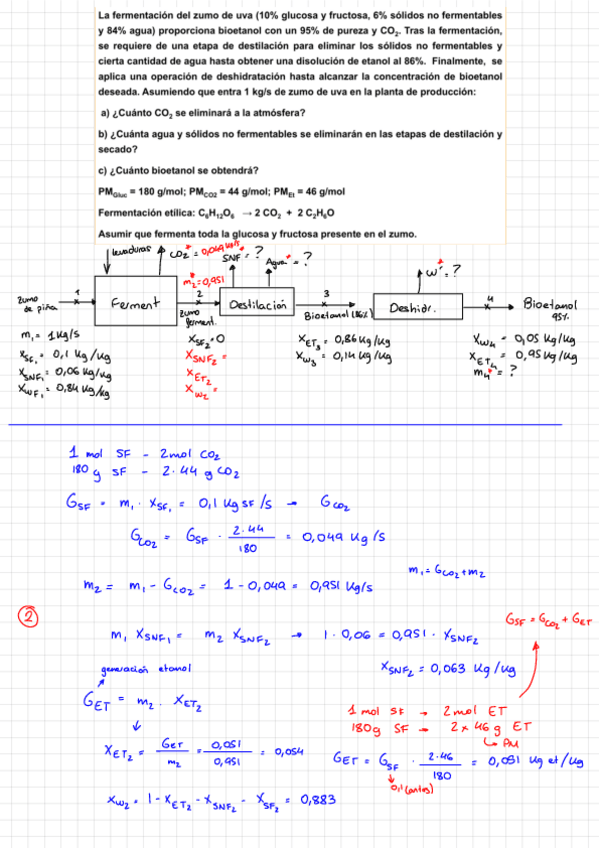 La fermentación del zumo de uva (10% glucosa y fructosa, 6% sólidos no fermentables
y 84% agua) proporciona bioetanol con un 95% de pureza y CO₂. Tras la fermentación,
se requiere de una etapa de destilación para eliminar los sólidos no fermentables y
cierta cantidad de agua hasta obtener una disolución de etanol al 86%. Finalmente, se
aplica una operación de deshidratación hasta alcanzar la concentración de bioetanol
deseada. Asumiendo que entra 1 kg/s de zumo de uva en la planta de producción:
a) ¿Cuánto CO₂ se eliminará a la atmósfera?
b) ¿Cuánta agua y sólidos no fermentables se eliminarán en las etapas de destilación y
secado?
c) ¿Cuánto bioetanol se obtendrá?
PM_Gluc = 180 g/mol; PM_CO2 = 44 g/mol; PM_Et = 46 g/mol
Fermentación etílica: C₆H₁₂O₆ → 2 CO₂ + 2 C₂H₆O
Asumir que fermenta toda la glucosa y fructosa presente en el zumo.
levaduras CO₂ = 0,049 kg/s SNF = ? Agua = ? W = ?
m₂ = 0,951
zumo de piña 1 Ferment 2 Destilación 3 Deshidr. 4 Bioetanol 95%
zumo ferment. Bioetanol (86%)
m₁ = 1 kg/s
x_SF₁ = 0,1 kg/kg
x_SNF₁ = 0,06 kg/kg
x_WF₁ = 0,84 kg/kg
x_SF₂ = 0
x_SNF₂ =
x_ET₂
x_W₂ =
x_ET₃ = 0,86 kg/kg
x_W₃ = 0,14 kg/kg
x_W₄ = 0,05 kg/kg
x_ET₄ = 0,95 kg/kg
m₄ = ?
1 mol SF - 2 mol CO₂
180 g SF - 2·44 g CO₂
G_SF = m₁ · x_SF₁ = 0,1 kg SF/s → G_CO₂
G_CO₂ = G_SF · 2·44/180 = 0,049 kg/s
m₁ = G_CO₂ + m₂
m₂ = m₁ - G_CO₂ = 1 - 0,049 = 0,951 kg/s
②
G_SF = G_CO₂ + G_ET
m₁ x_SNF₁ = m₂ x_SNF₂ → 1 · 0,06 = 0,951 · x_SNF₂
x_SNF₂ = 0,063 kg/kg
generación etanol
G_ET = m₂ · x_ET₂
1 mol SF → 2 mol ET
180g SF → 2 x 46 g ET
PM
x_ET₂ = G_ET/m₂ = 0,051/0,951 = 0,054
G_ET = G_SF · 2·46/180 = 0,051 kg et/kg
0,1 (antes)
x_W₂ = 1 - x_ET₂ - x_SNF₂ - x_SF₂ = 0,883